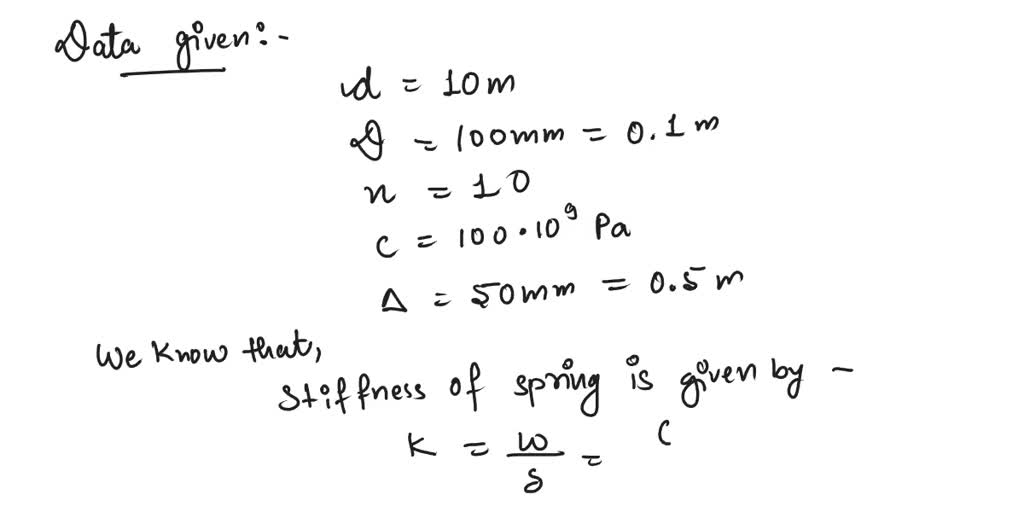 Data given:-
d = 10m
D = 100mm = 0.1 m
n = 10
C = 100·10⁹ Pa
Δ = 50mm = 0.5 m
We know that,
stiffness of spring is given by -
K = W/δ = C